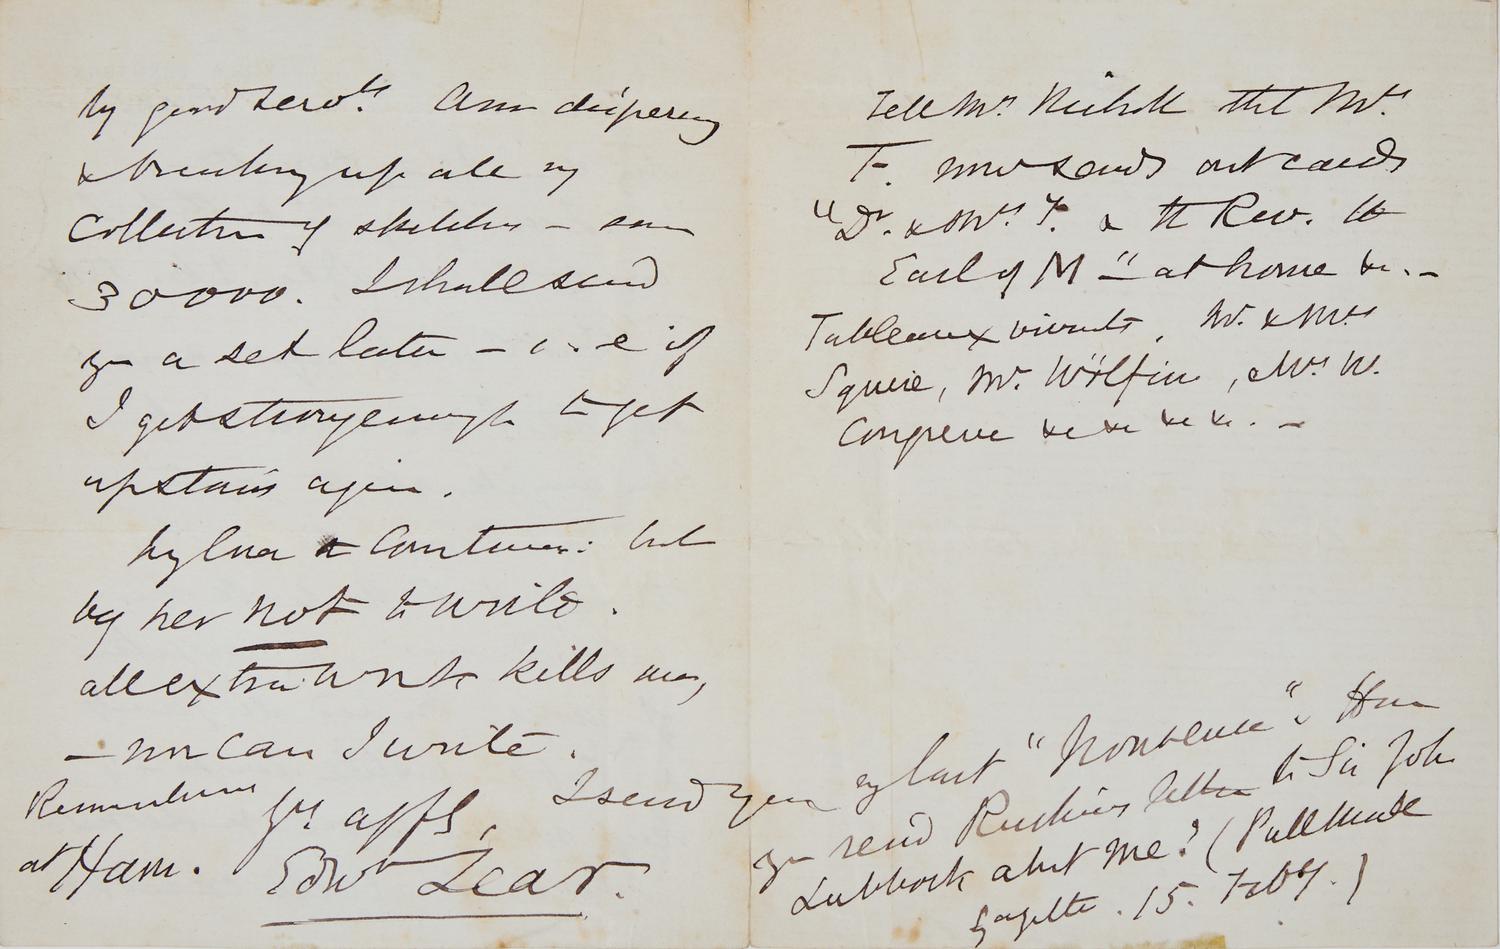 by good servts. Am dispersing
& breaking up all my
Collection of sketches — some
30000. I shall send
you a set later — i.e if
I get strong enough to get
upstairs again.
My love to Contessa: but
beg her not to write.
all extra work kills me,
— nor can I write.
Remembrances
at Ham.
Yrs. affly,
Edwd Lear.
Tell Mrs. that Mrs.
T. now sends out cards
"Dr. & Mrs. T. & the Rev. the
Earl of M—" at home &c. —
Tableaux vivants, Mr. & Mrs
Squire, Mr. Wölfin, Mrs. W.
Congreve &c &c &c &c. —
I send you my last "Nonsense". Have
you seen Ruskin's letter to Sir John
Lubbock abut me? (Pall Mall
Gazette. 15. Feby.)